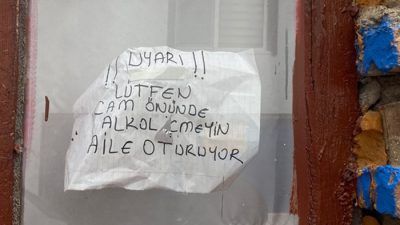 !! UYARI !!
LÜTFEN
CAM ÖNÜNDE
ALKOL İÇMEYİN
AİLE OTURUYOR